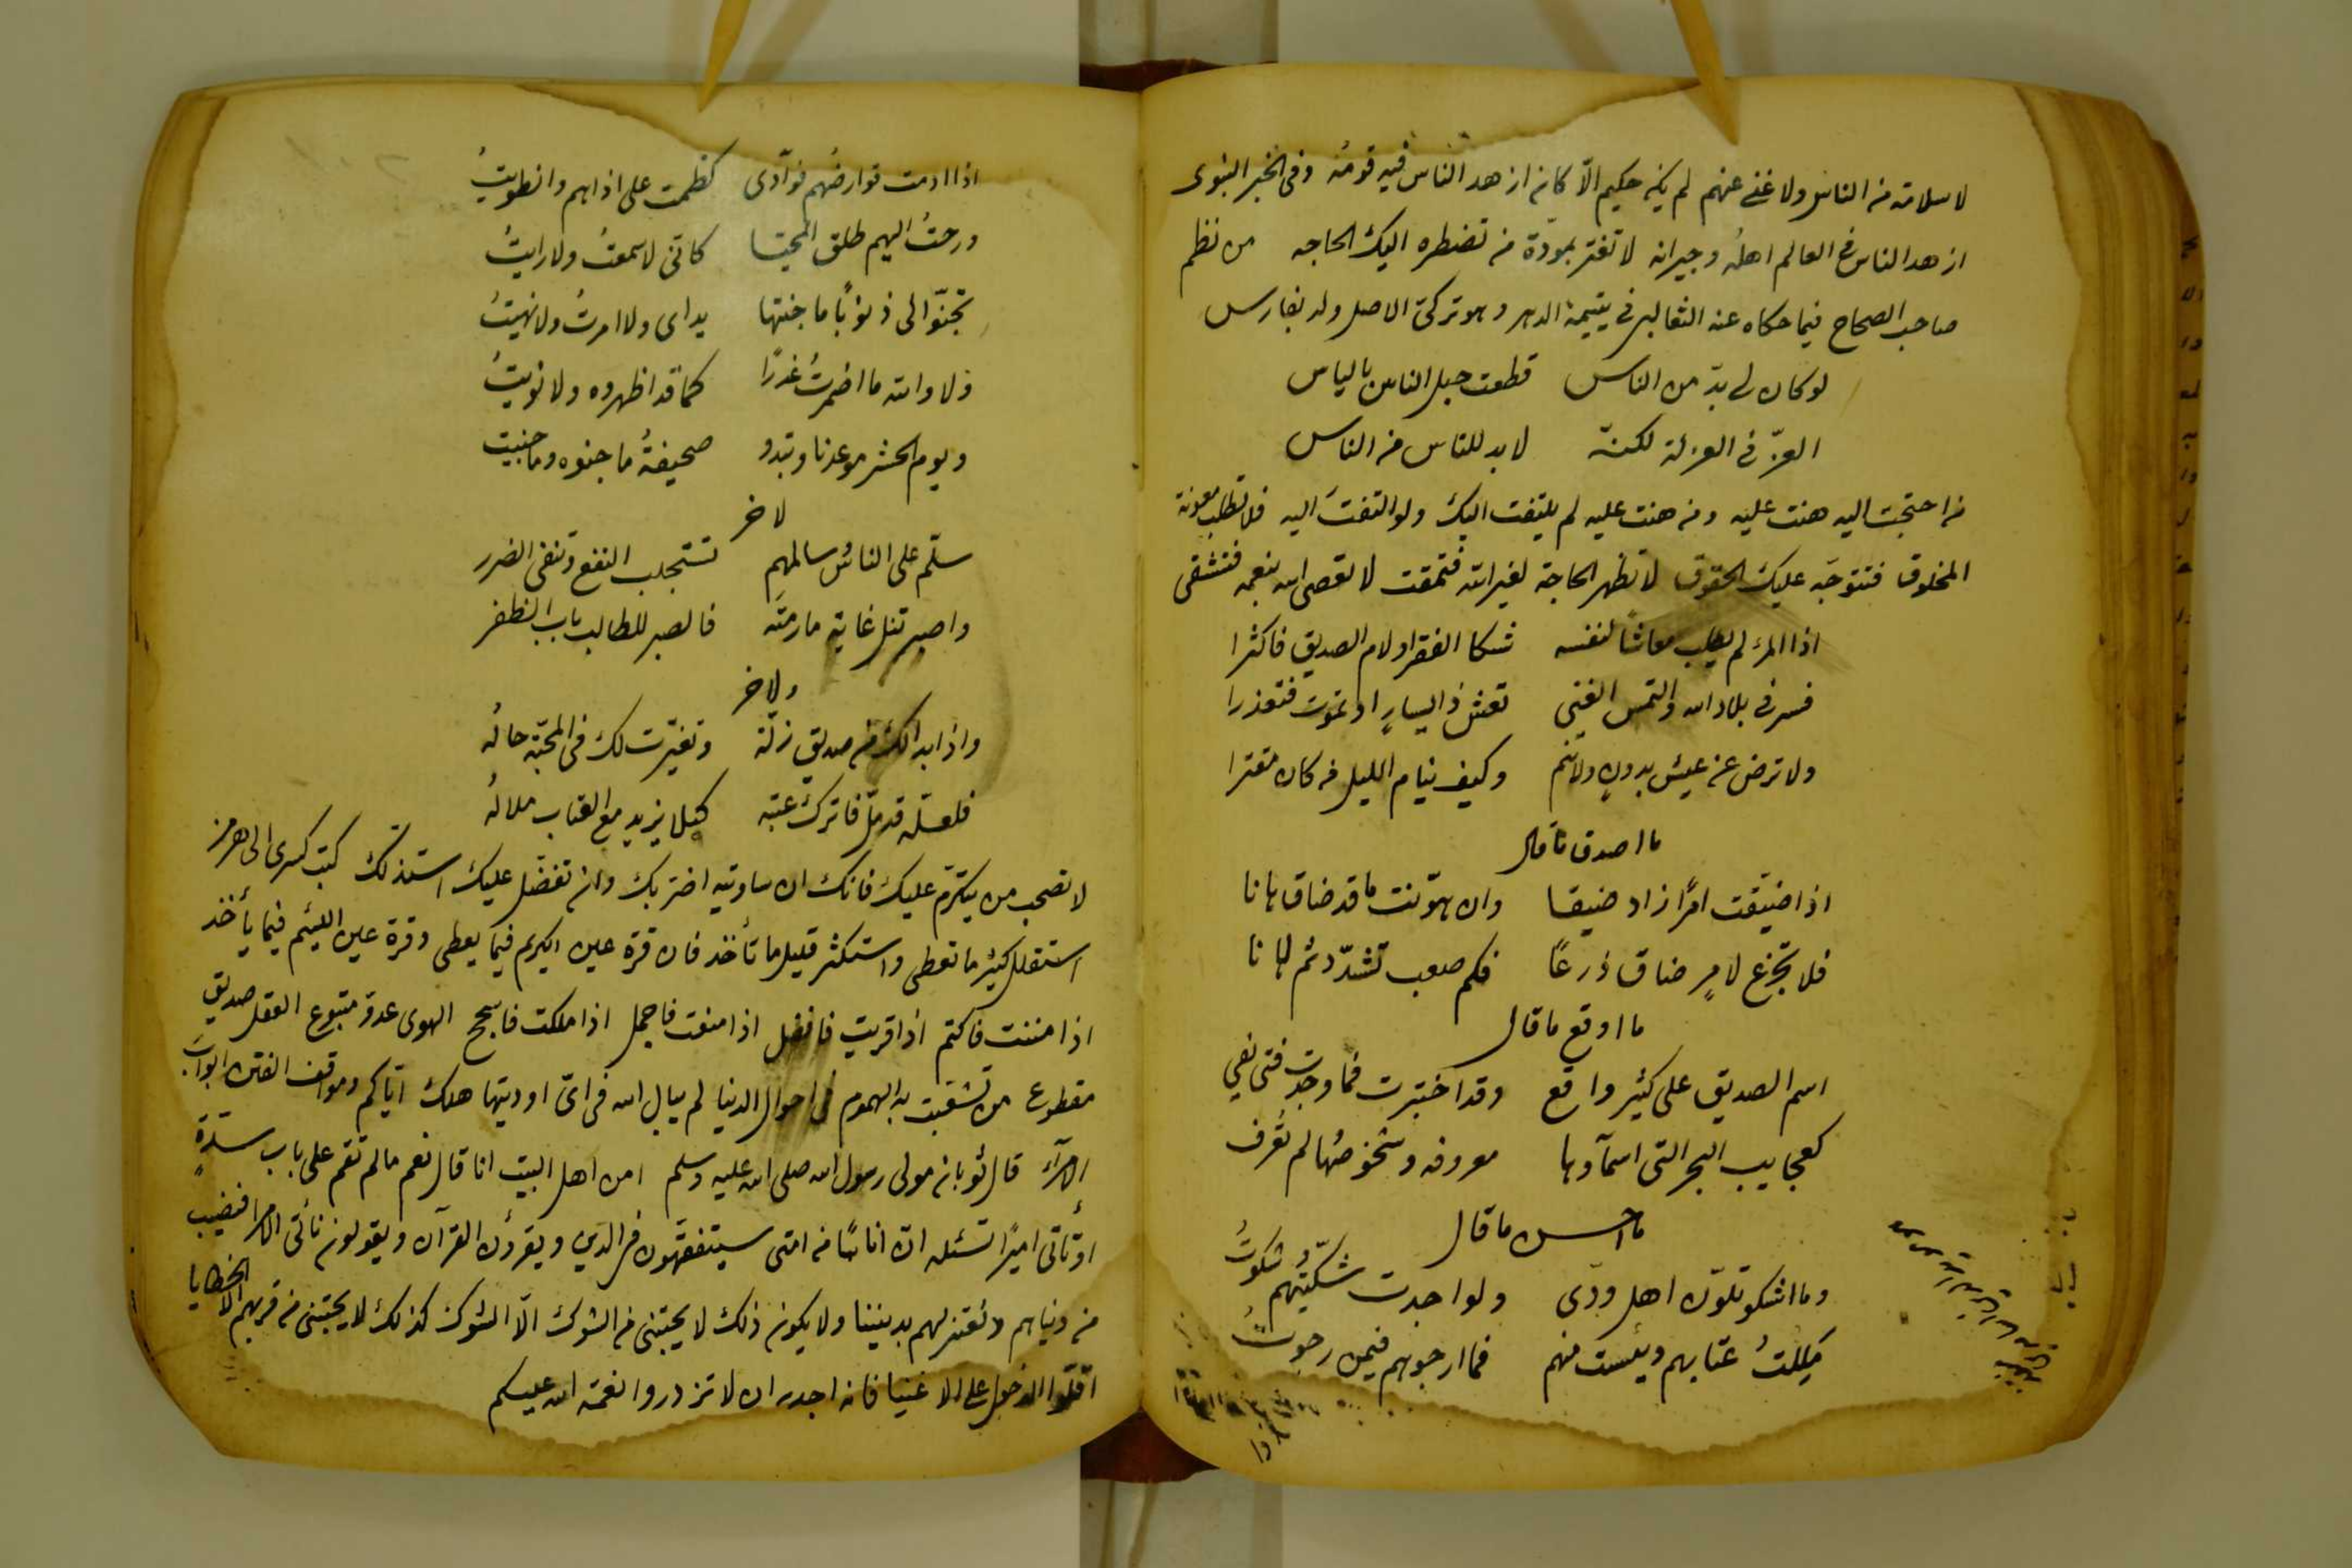 لا سلامة من الناس ولا غنى عنهم لم يكن حكيم الّا كان ازهد الناس فيه قومُه وفى الخبر النبوى
ازهد الناس فى العالم اهله وجيرانه لا تغتر بمودّة من تضطره اليك الحاجه من نظم
صاحب الصحاح فيما حكاه عنه الثعالبى فى يتيمة الدهر وهو تركىّ الاصل ولد بفارس
لو كان لى بدّ من الناس قطعت حبل الناس بالياس
العزّ فى العزلة لكنّه لا بد للناس من الناس
من احتجت اليه هنت عليه ومن هنت عليه لم يلتفت اليك ولو التفتَ اليه فلا تطلب معونة
المخلوق فتتوجّه عليك الحقوق لا تظهر الحاجة لغير الله فتمقت لا تعص الله بنعمه فتشقى
اذا المرء لم يطلب معاشًا لنفسه شكا الفقر او لام الصديق فاكثرا
فسر فى بلاد الله والتمس الغنى تعش ذا يسارٍ او تموت فتعذرا
ولا ترض عن عيش بدونٍ ولا تنم وكيف ينام الليل من كان مقترا
ما اصدق ما قال
اذا ضيّقت امرًا زاد ضيقا وان هوّنت ما قد ضاق هانا
فلا تجزع لامرٍ ضاق ذرعًا فكم صعب تشدّد ثم لانا
ما اوقع ما قال
اسم الصديق على كثير واقع وقد اختبرت فما وجدت فتى يفى
كعجايب البحر التى اسمآوها معروفه وشخوصُها لم تُعرف
ما احسن ما قال
وما اشكو تلوّن اهل ودّى ولو اجدت شكيّتُهم شكوتُ
مَلِلتُ عتابهم ويئست منهم فما ارجوهم فيمن رجوتُ
اذا ادمت قوارضُهم فوآدى كظمت على اذاهم وانطويتُ
ورحتُ اليهم طلق المحيّا كانّى لا سمعتُ ولا رايتُ
تجنّوا لى ذنوبًا ما جنتها يداى ولا امرتُ ولا نهيتُ
ولا والله ما اضمرتُ غدرًا كما قد اظهروه ولا نويتُ
ويوم الحشر موعدنا وتبدو صحيفةُ ما جنوه وما جنيت
لاخر
سلّم على الناس وسالمهم تستجلب النفع وتنفى الضرر
واصبر تنل غاية ما رمتَه فالصبر للطالب باب الظفر
ولاخر
واذا بدا لك من صديق زلّة وتغيّرت لك فى المحبّة حالُه
فلعلّه قد ملّ فاترك عتبه كيلا يزيد مع العتاب ملالُه
لا تصحب من يتكرّم عليك فانك ان ساويته اضرّ بك وان تفضّل عليك استذلّك كتب كسرى الى هرمز
استقلل كثير ما تعطى واستكثر قليل ما تأخذ فان قرة عين الكريم فيما يعطى وقرة عين اللئيم فيما يأخذ
اذا مننت فاكتم اذا قريت فافضل اذا منعت فاجمل اذا ملكت فاسجح الهوى عدوّ متبوع العقل صديق
مقطوع من تشعّبت به الهموم فى احوال الدنيا لم يبال الله فى اىّ اوديتها هلك ايّاكم ومواقف الفتن ابواب
الامرآء قال ثوبان مولى رسول الله صلى الله عليه وسلم امن اهل البيت انا قال نعم ما لم تقم على باب سدّةٍ
او تأتى اميرًا تسئله انّ اناسًا من امتى سيتفقّهون فى الدين ويقرؤن القرآن ويقولون نأتى الامرا فنصيب
من دنياهم ونعتزلهم بديننا ولا يكون ذلك لا يجتنى من الشوك الّا الشوك كذلك لا يجتنى من قربهم الّا الخطايا
اقلّوا الدخول على الاغنيا فانه اجدر ان لا تزدروا نعمة الله عليكم